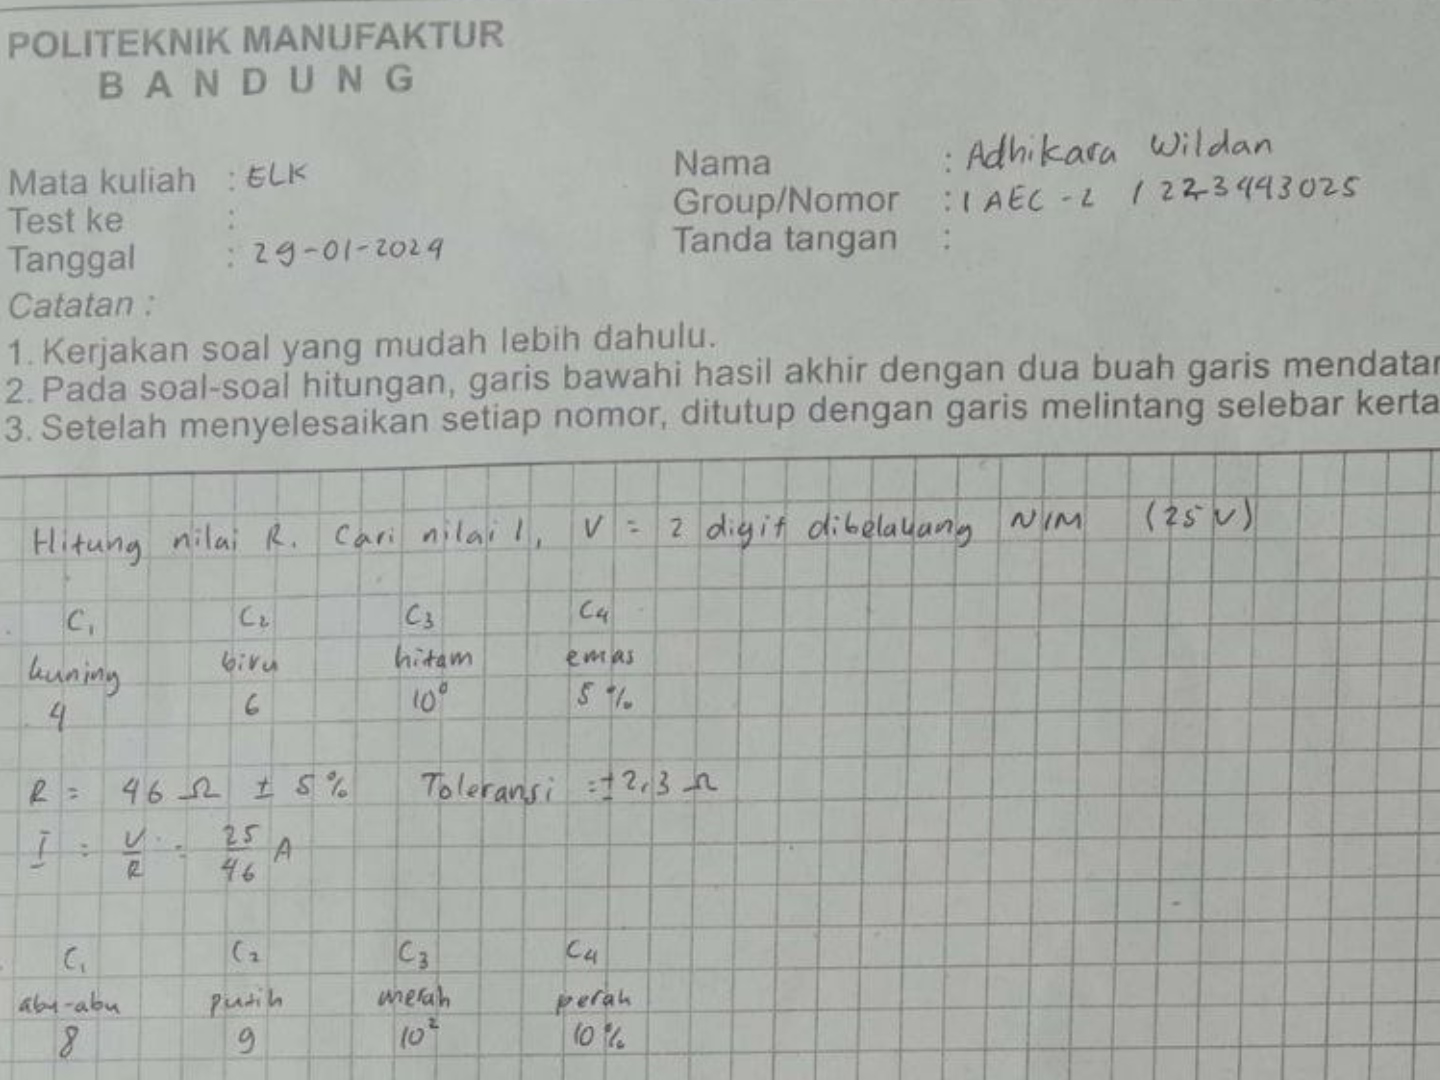 POLITEKNIK MANUFAKTUR
BANDUNG
Mata kuliah : ELK
Test ke :
Tanggal : 29-01-2024
Nama : Adhikara Wildan
Group/Nomor : 1 AEC - 2 / 223443025
Tanda tangan :
Catatan :
1. Kerjakan soal yang mudah lebih dahulu.
2. Pada soal-soal hitungan, garis bawahi hasil akhir dengan dua buah garis mendatar
3. Setelah menyelesaikan setiap nomor, ditutup dengan garis melintang selebar kerta
Hitung nilai R. Cari nilai I, V = 2 digit dibelakang NIM (25 V)
C₁ C₂ C₃ C₄
kuning biru hitam emas
4 6 10⁰ 5 %
R = 46 Ω ± 5 % Toleransi = ± 2,3 Ω
I = V/R = 25/46 A
C₁ C₂ C₃ C₄
abu-abu putih merah perak
8 9 10² 10 %